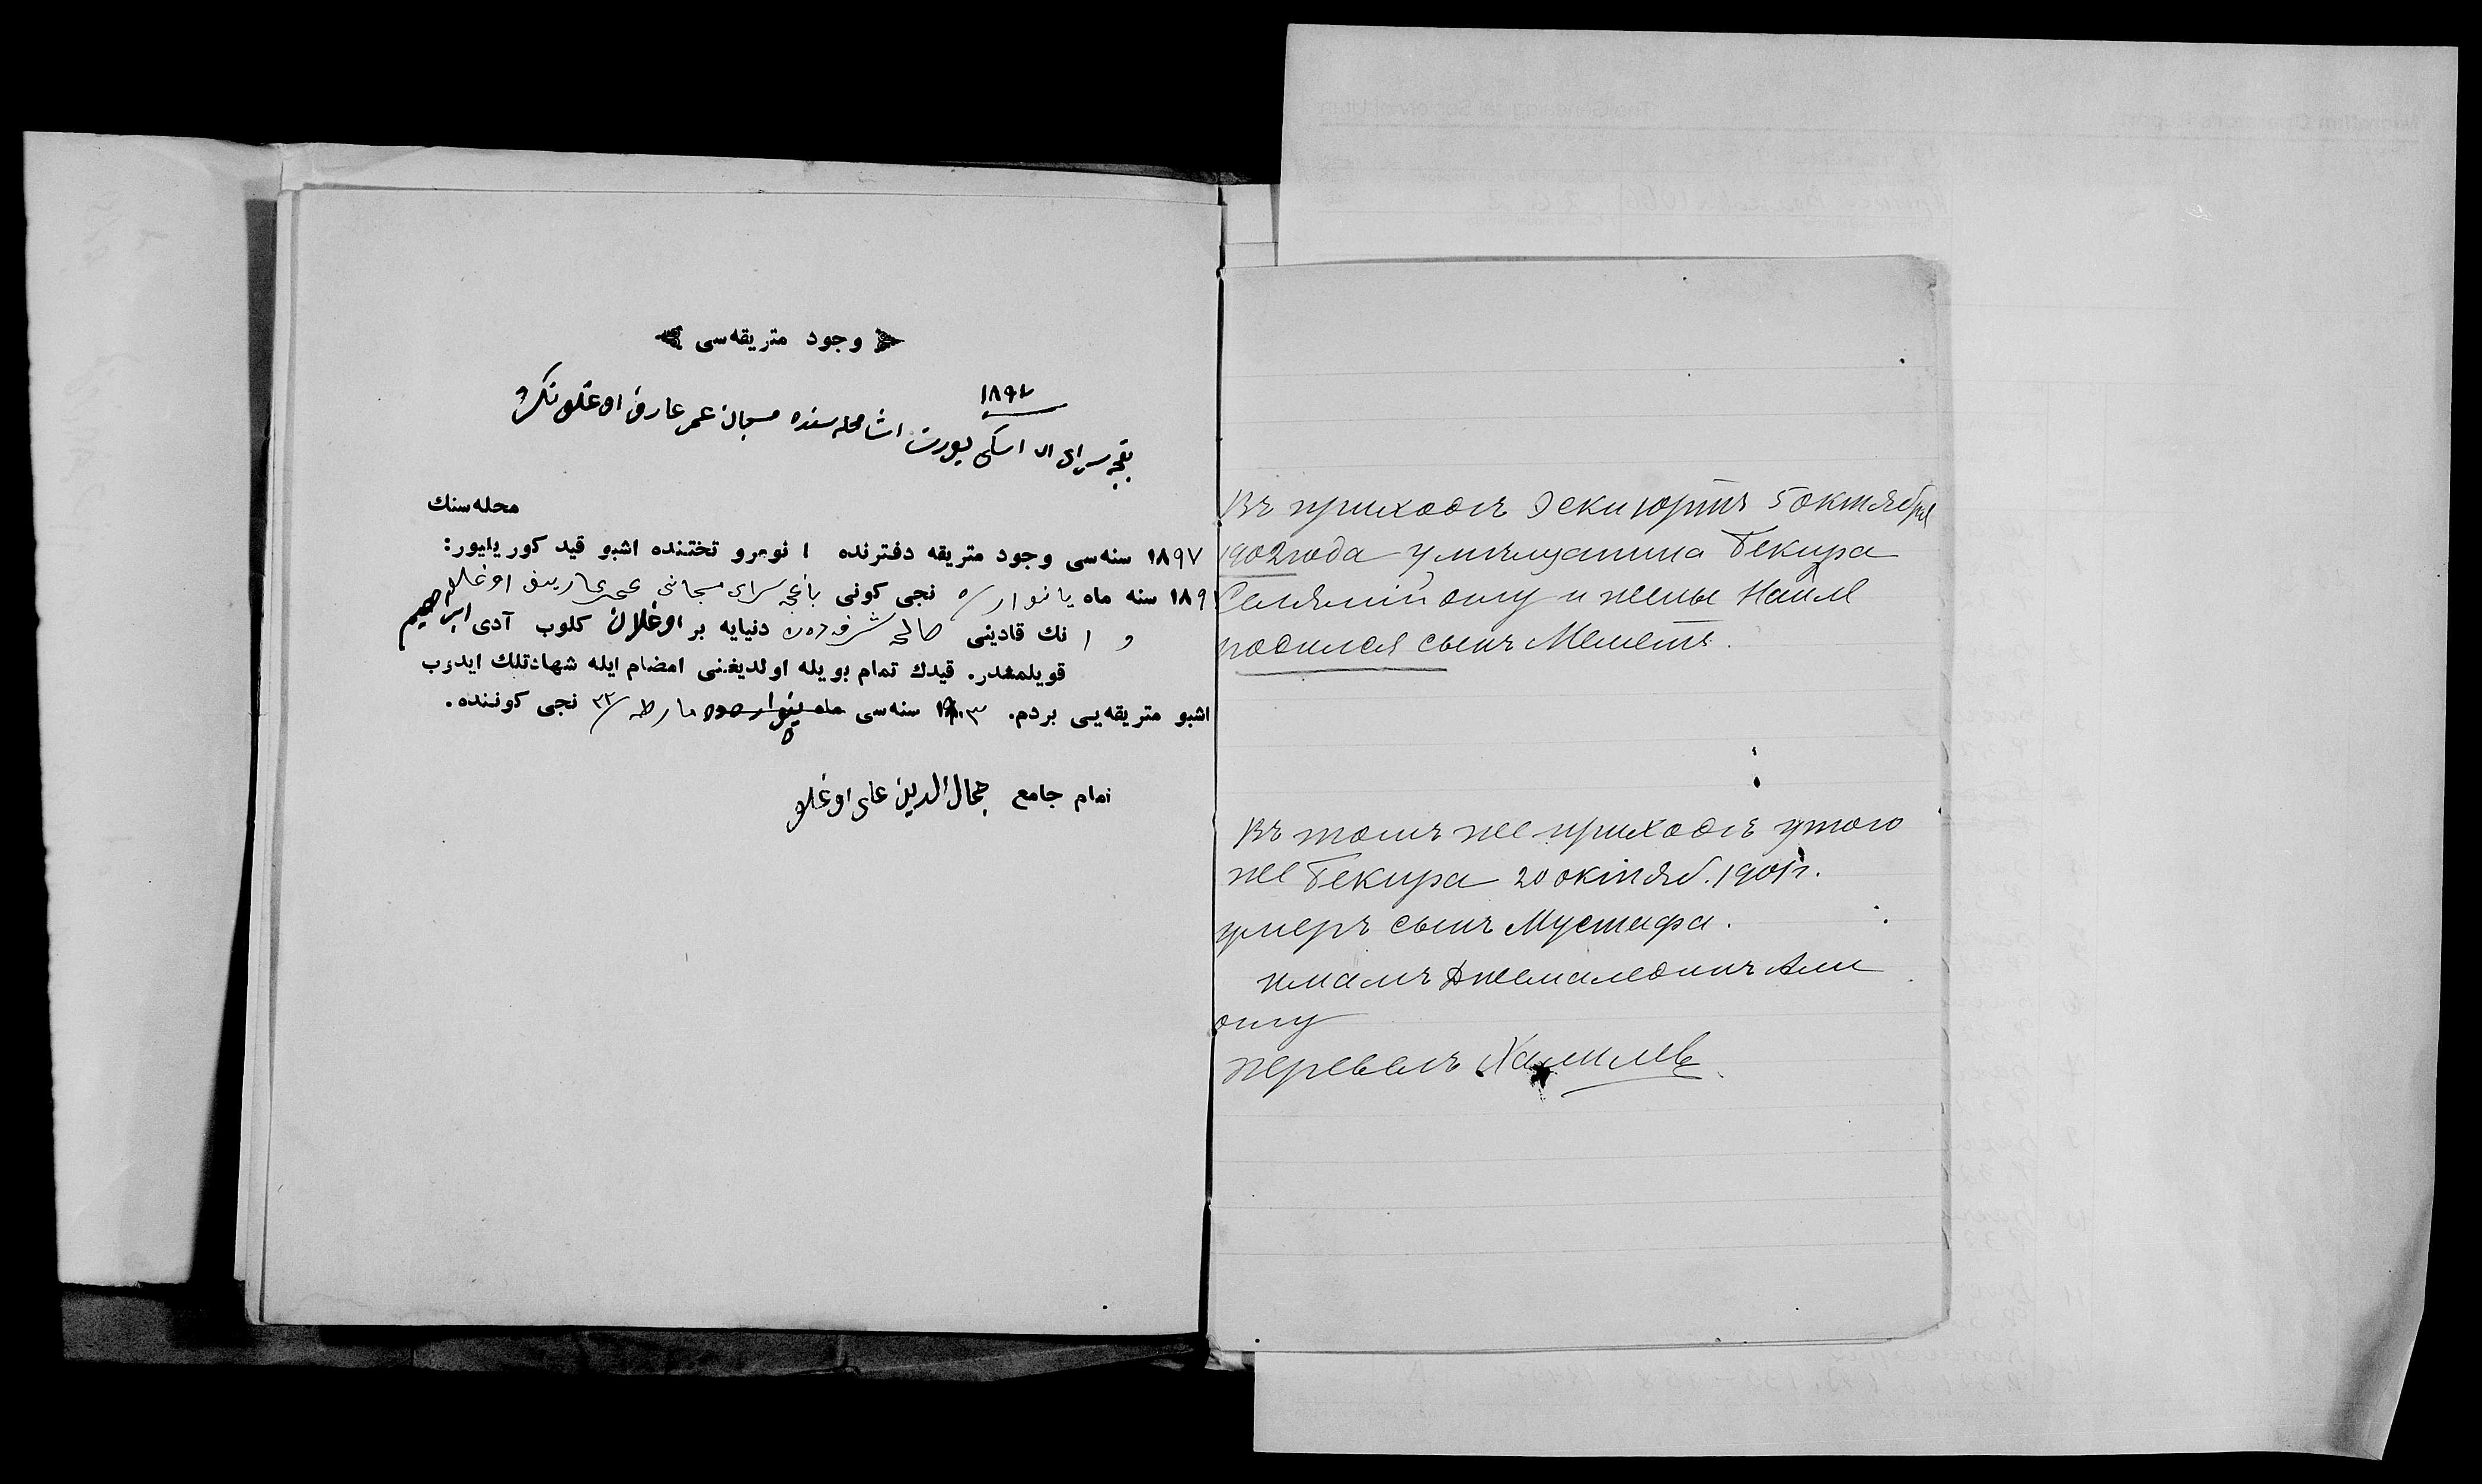 وجود متریقه‌سی
١٨٩٧
بغچه سرای اسکی یورت محله سنده مسجان عمر عارف اوغلونك
محله‌سنك
١٨٩٧ سنه‌سی وجود متریقه دفترنده ١ نومرو تختنده اشبو قید كوریلیور:
١٨٩ سنه ماه یانوار ٥ نجی كونی باغچه سرای مسجانی عمر عاریف اوغلا
و ا نك قادینی صالحه شرفه‌دن دنیایه بر اوغلان كلوب آدی ابراهیم
قویلمغدر. قیدك تمام بویله اولدیغنی امضام ایله شهادتلك ایدوب
اشبو متریقه‌یی بردم. سنه‌سی مارطه ٢٢ نجی كوننده.
امام جامع جمال الدین علی اوغلو
Въ приходѣ Эски юртъ 5 октября
1902 года у мѣщанина Бекира
Селямій оглу и жены Наиле
родился сынъ Меметъ.
Въ томъ же приходѣ у того
же Бекира 20 октяб. 1901 г.
умеръ сынъ Мустафа.
имамъ Джемалединъ Али
оглу
перевелъ Халилев